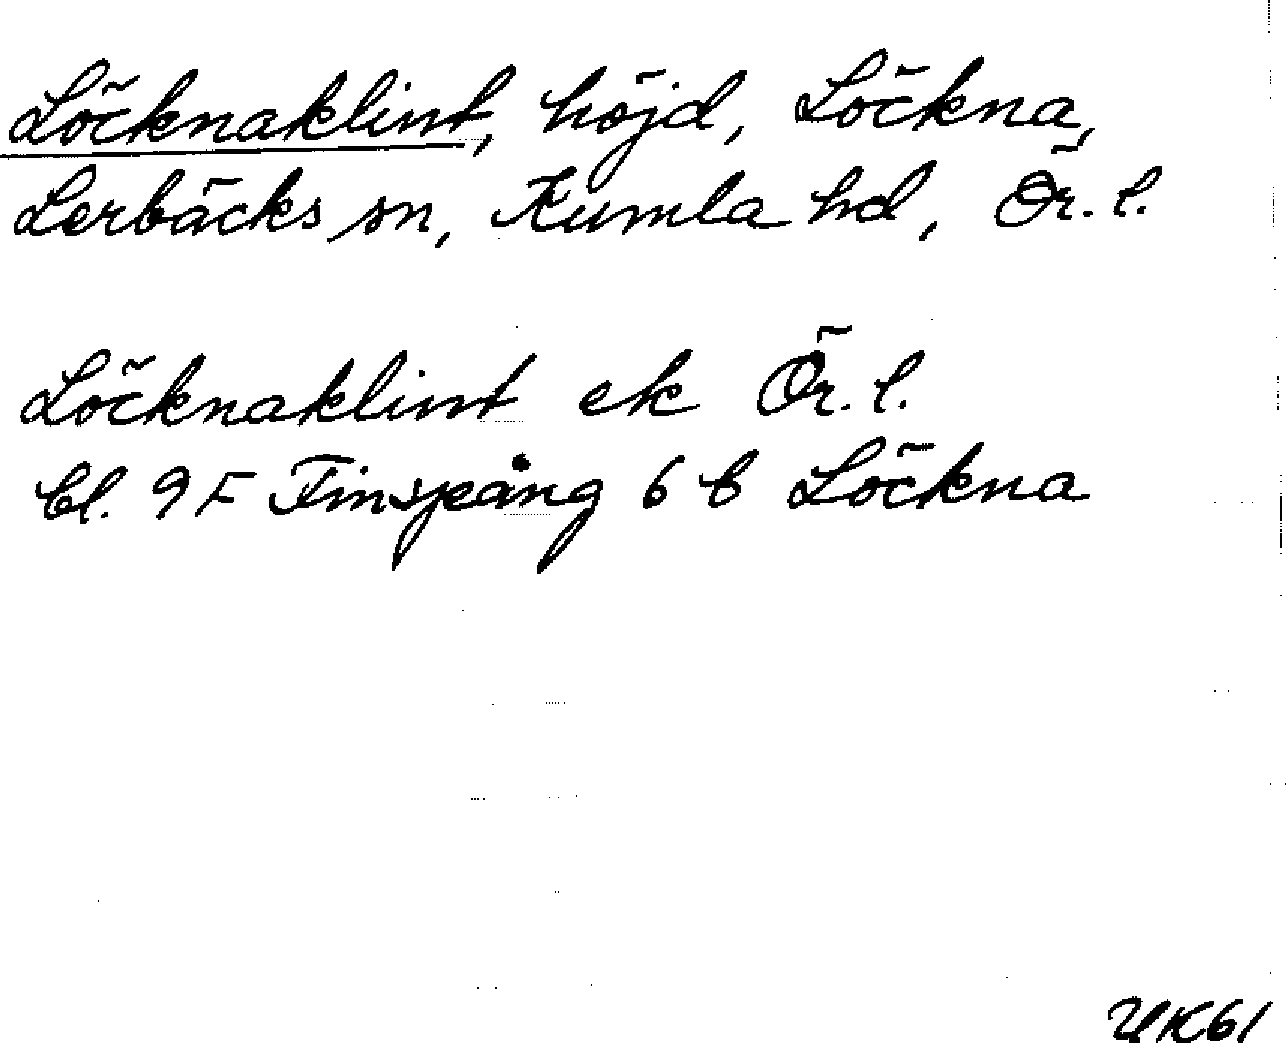 Löcknaklint, höjd, Löckna,
Lerbäcks sn, Kumla hd, Ör. l.
Löcknaklint ek Ör. l.
Bl. 9F Finspång 6 b Löckna
UK61